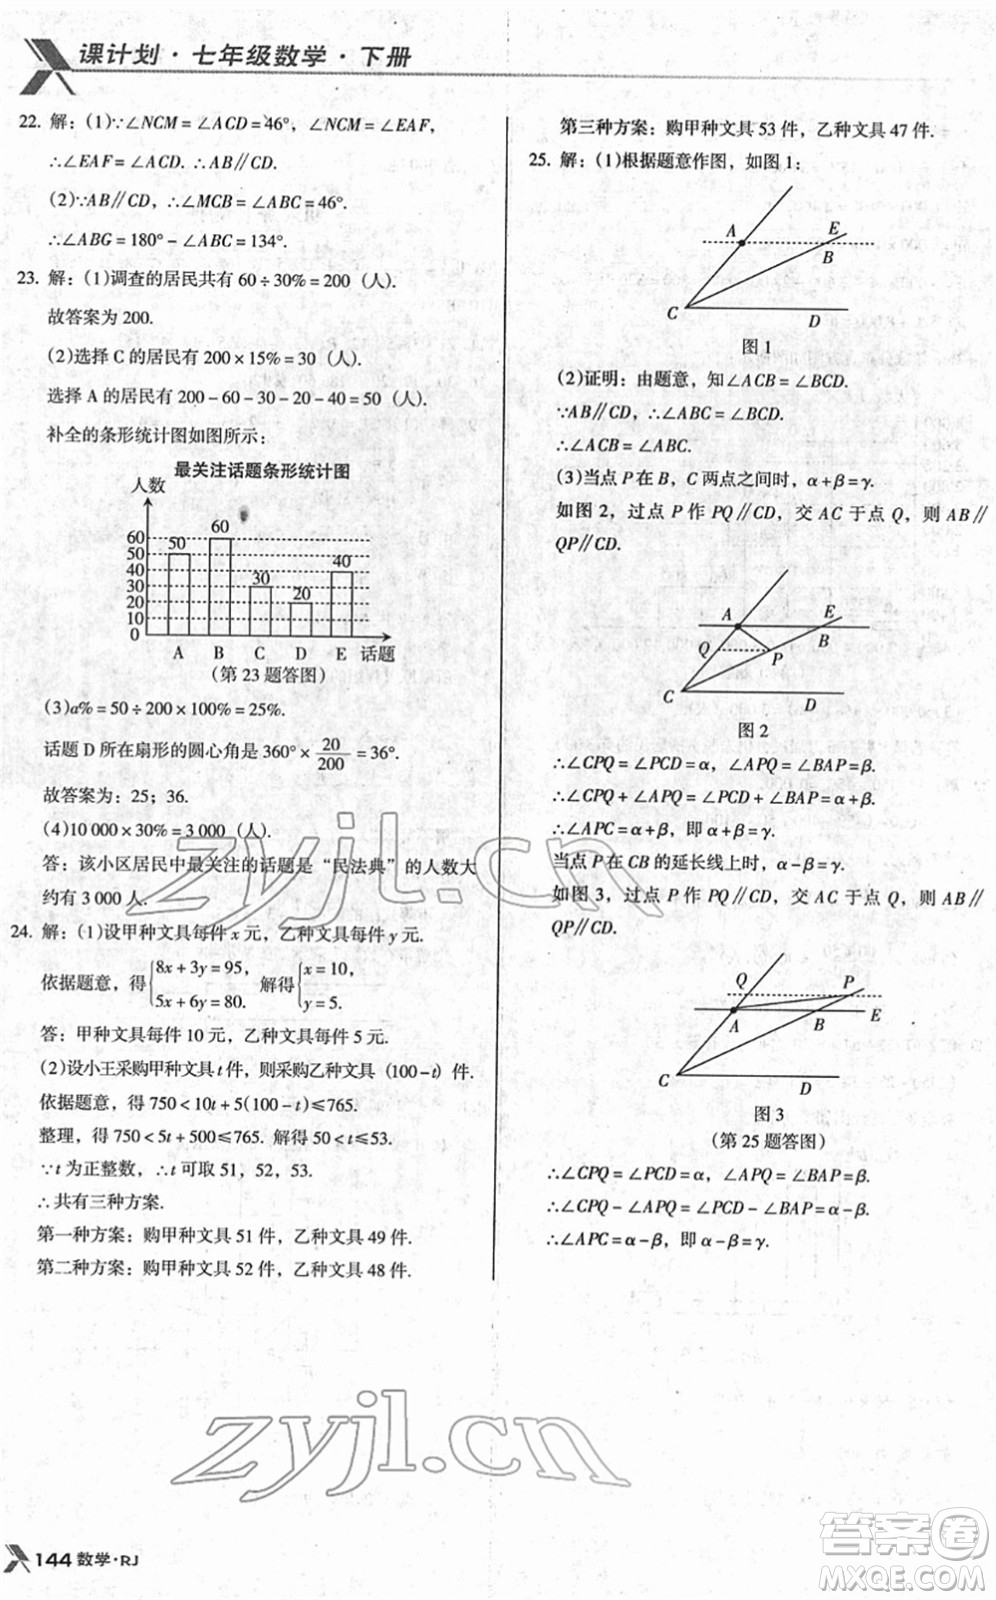 课计划·七年级数学·下册
22. 解：(1)∵∠NCM=∠ACD=46°，∠NCM=∠EAF，
∴∠EAF=∠ACD. ∴AB∥CD.
(2)∵AB∥CD，∴∠MCB=∠ABC=46°.
∴∠ABG=180°-∠ABC=134°.
23. 解：(1)调查的居民共有 60÷30%=200（人）.
故答案为 200.
(2)选择 C 的居民有 200×15%=30（人）.
选择 A 的居民有 200-60-30-20-40=50（人）.
补全的条形统计图如图所示：
最关注话题条形统计图
人数
60
50
40
30
20
10
0
50
60
30
20
40
A B C D E 话题
(第 23 题答图)
(3)a%=50÷200×100%=25%.
话题 D 所在扇形的圆心角是 360°×20/200=36°.
故答案为：25；36.
(4)10 000×30%=3 000（人）.
答：该小区居民中最关注的话题是“民法典”的人数大
约有 3 000 人.
24. 解：(1)设甲种文具每件 x 元，乙种文具每件 y 元.
依据题意，得{8x+3y=95, 5x+6y=80. 解得{x=10, y=5.
答：甲种文具每件 10 元，乙种文具每件 5 元.
(2)设小王采购甲种文具 t 件，则采购乙种文具（100-t）件.
依据题意，得 750<10t+5(100-t)≤765.
整理，得 750<5t+500≤765. 解得 50<t≤53.
∵t 为正整数，∴t 可取 51，52，53.
∴共有三种方案.
第一种方案：购甲种文具 51 件，乙种文具 49 件.
第二种方案：购甲种文具 52 件，乙种文具 48 件.
第三种方案：购甲种文具 53 件，乙种文具 47 件.
25. 解：(1)根据题意作图，如图 1：
A
E
B
C
D
图 1
(2)证明：由题意，知∠ACB=∠BCD.
∵AB∥CD，∴∠ABC=∠BCD.
∴∠ACB=∠ABC.
(3)当点 P 在 B，C 两点之间时，α+β=γ.
如图 2，过点 P 作 PQ∥CD，交 AC 于点 Q，则 AB∥
QP∥CD.
A
E
B
Q
P
C
D
图 2
∴∠CPQ=∠PCD=α，∠APQ=∠BAP=β.
∴∠CPQ+∠APQ=∠PCD+∠BAP=α+β.
∴∠APC=α+β，即 α+β=γ.
当点 P 在 CB 的延长线上时，α-β=γ.
如图 3，过点 P 作 PQ∥CD，交 AC 于点 Q，则 AB∥
QP∥CD.
Q
P
A
B
E
C
D
图 3
(第 25 题答图)
∴∠CPQ=∠PCD=α，∠APQ=∠BAP=β.
∴∠CPQ-∠APQ=∠PCD-∠BAP=α-β.
∴∠APC=α-β，即 α-β=γ.
zyjl.cn
zyjl.cn
144 数学·RJ
答案卷
MXQE.COM